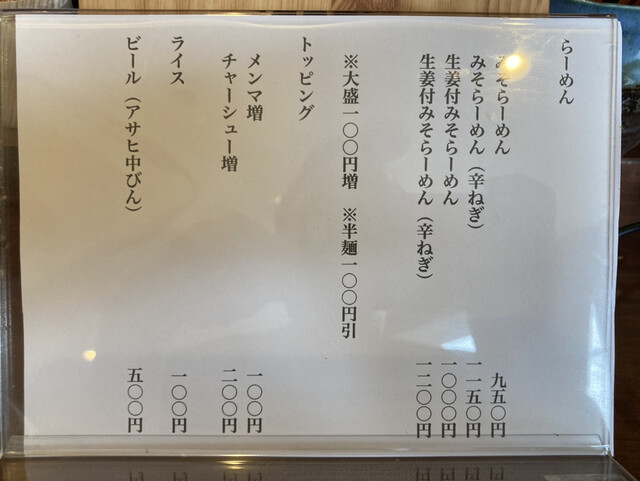 らーめん
みそらーめん 九五〇円
みそらーめん（辛ねぎ） 一一五〇円
生姜付みそらーめん 一〇〇〇円
生姜付みそらーめん（辛ねぎ） 一二〇〇円
※大盛一〇〇円増 ※半麺一〇〇円引
トッピング
メンマ増 一〇〇円
チャーシュー増 二〇〇円
ライス 一〇〇円
ビール（アサヒ中びん） 五〇〇円